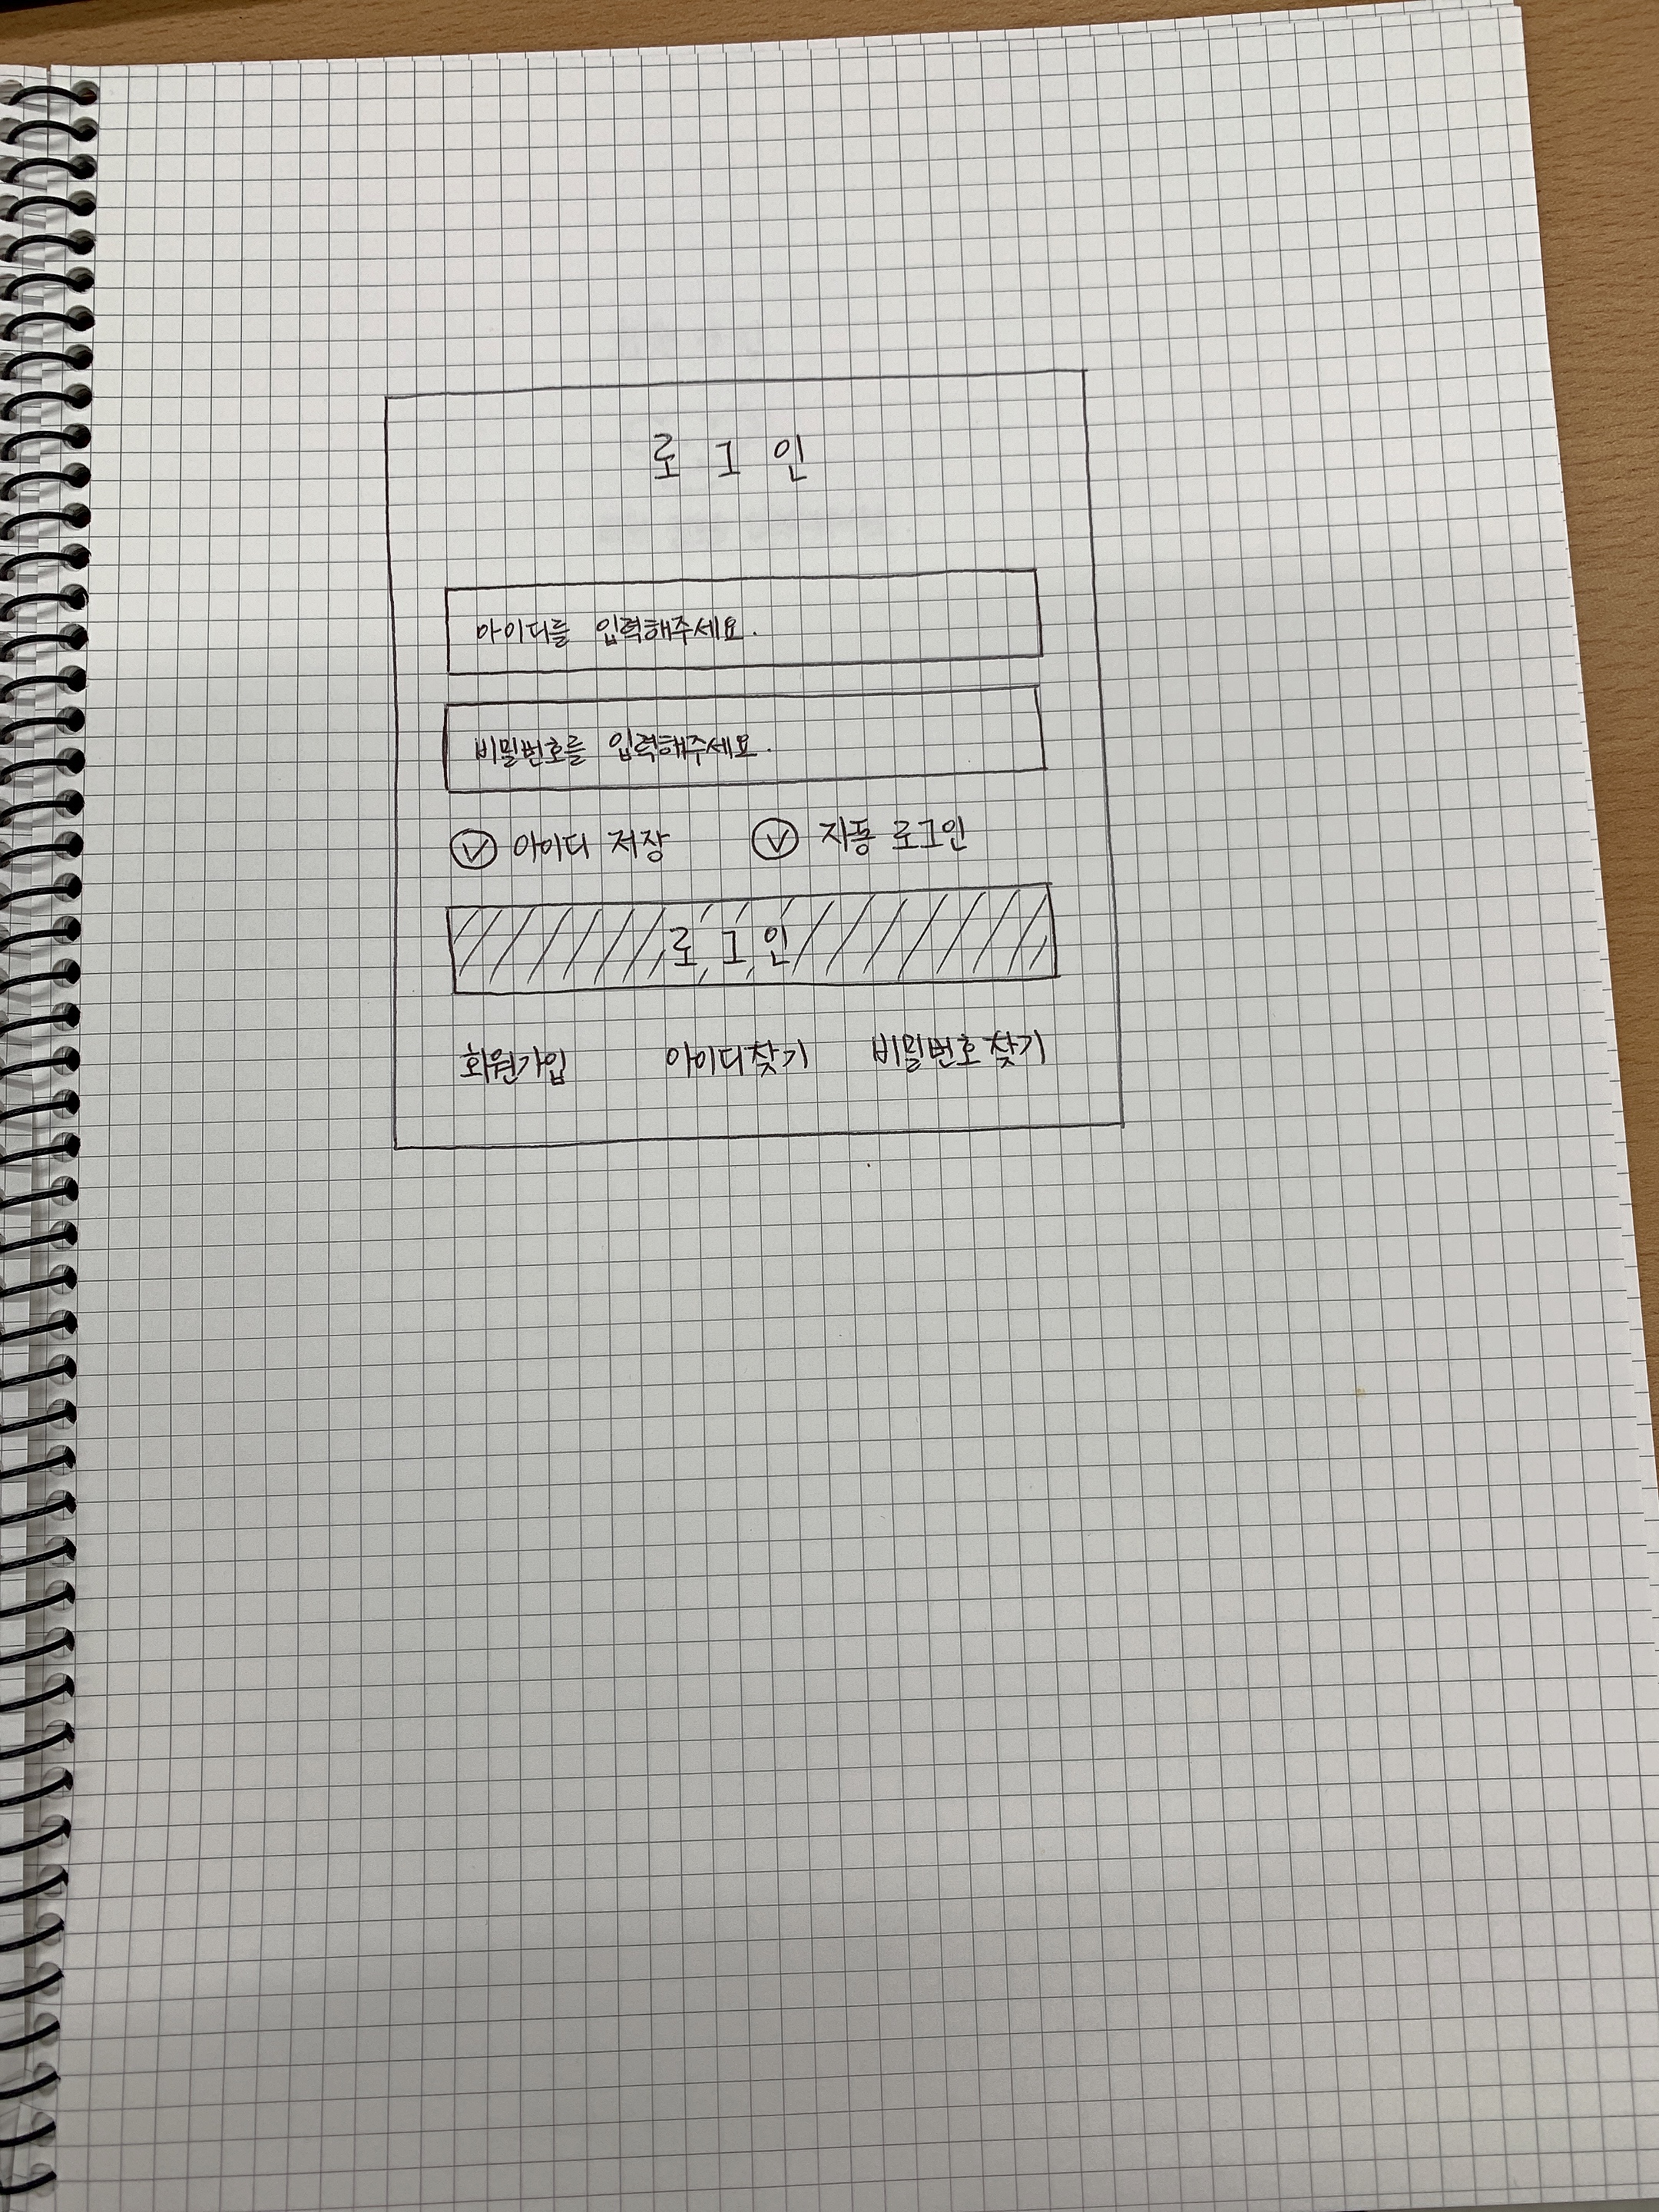 로그인
아이디를 입력해주세요.
비밀번호를 입력해주세요.
아이디 저장 자동 로그인
로그인
회원가입 아이디찾기 비밀번호 찾기